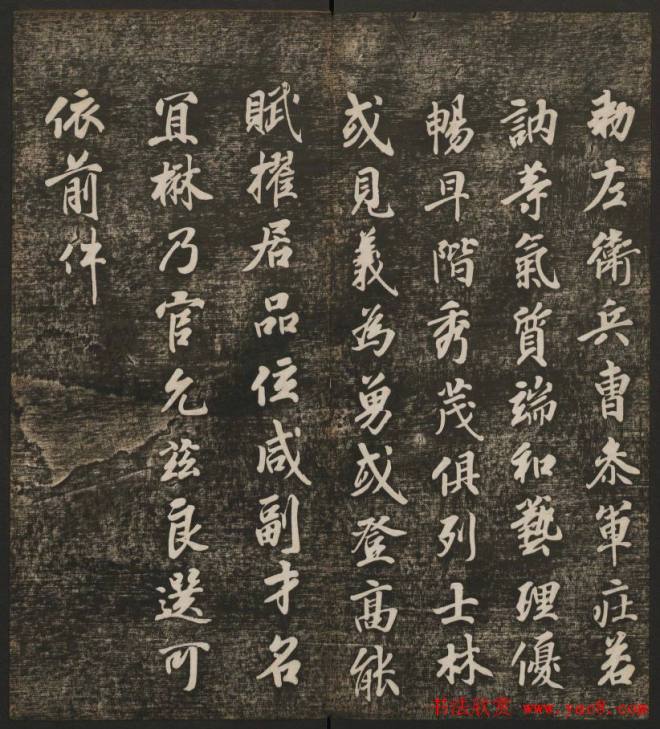 勅左衛兵曹叅軍庄若
訥等氣质端和藝理優
暢早階秀茂俱列士林
或見義為勇或登高能
賦擢居品位咸副才名
宜楙乃官允兹良選可
依前件
书法欣赏 www.yac8.com